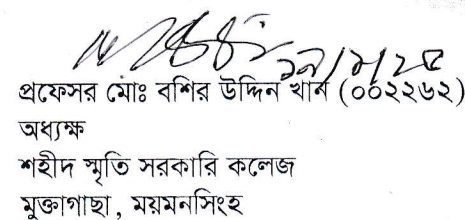 প্রফেসর মোঃ বশির উদ্দিন খান (০০২২৬২)
অধ্যক্ষ
শহীদ স্মৃতি সরকারি কলেজ
মুক্তাগাছা, ময়মনসিংহ